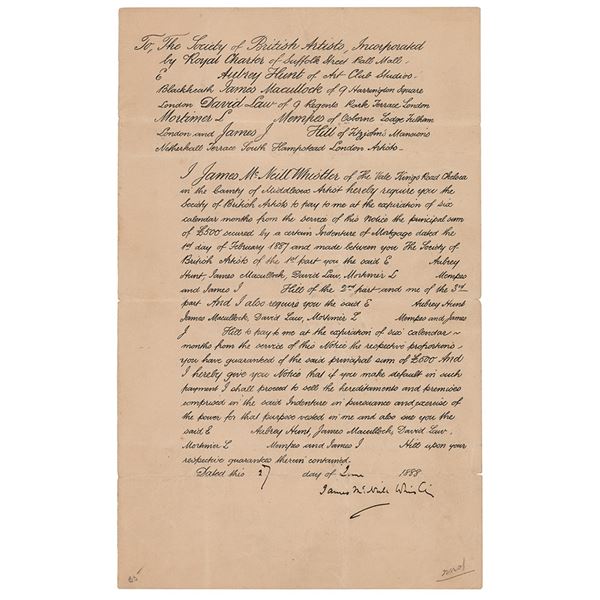 To, The Society of British Artists, Incorporated
by Royal Charter of Suffolk Street Pall Mall -
E Aubrey Hunt of Art Club Studios -
Blackheath James Macullock of 9 Harrington Square
London David Law of 9 Regents Park Terrace London
Mortimer L Mempes of Osborne Lodge Fulham
London and James J Hill of Fitzjohn's Mansions
Netherhall Terrace South Hampstead London Artists -
I James Mc. Neill Whistler of The Vale Kings Road Chelsea
in the County of Middlesex Artist hereby require you the
Society of British Artists to pay to me at the expiration of six
calendar months from the service of this Notice the principal sum
of £500 secured by a certain Indenture of Mortgage dated the
1st day of February 1887 and made between you The Society of
British Artists of the 1st part you the said E Aubrey
Hunt, James Macullock, David Law, Mortimer L Mempes
and James I Hill of the 2nd part and me of the 3rd
part And I also require you the said E Aubrey Hunt
James Macullock, David Law, Mortimer L Mempes and James
J Hill to pay to me at the expiration of six calendar ~
months from the service of this Notice the respective proportions -
you have guaranteed of the said principal sum of £500 And
I hereby give you Notice that if you make default in such
payment I shall proceed to sell the hereditaments and premises
comprised in the said Indenture in pursuance and exercise of
the power for that purpose vested in me and also sue you the
said E Aubrey Hunt, James Macullock, David Law,
Mortimer L Mempes and James I Hill upon your
respective guarantees therein contained.
Dated this 27 day of June 1888
James McNeill Whistler